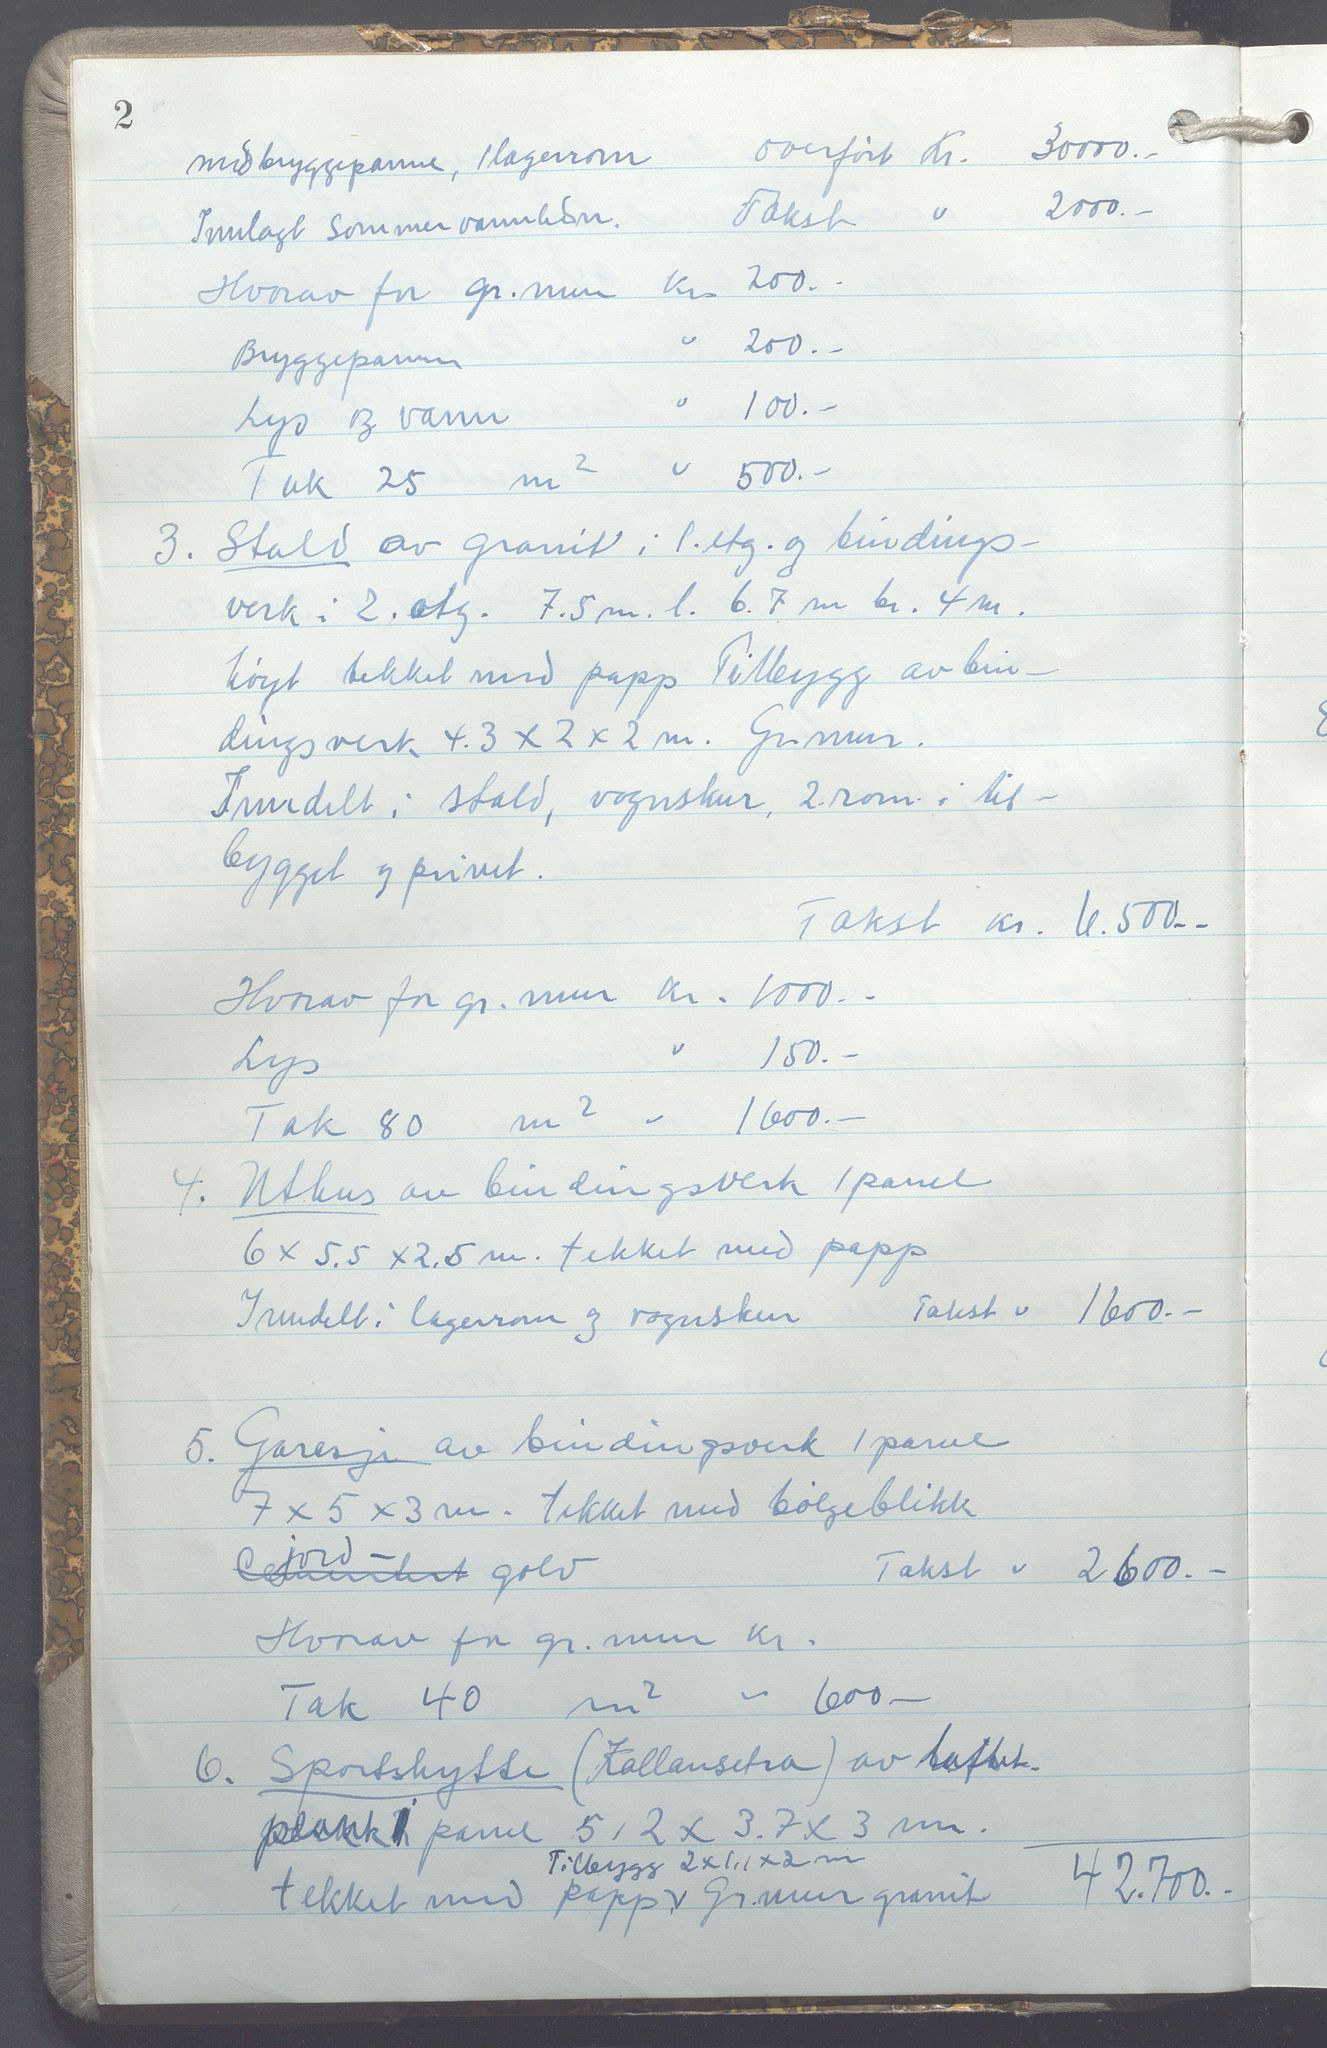 2
med bryggepanne, 1 lagerrom overført Kr. 30000.-
Innlagt sommervann Takst " 2000.-
Hvorav for gr. mur Kr. 200.-
Bryggepanne " 200.-
Lys og vann " 100.-
Tak 25 m² " 500.-
3. Stald av granit i 1. etg. og bindings-
verk i 2. etg. 7.5 m. l. 6.7 m br. 4 m.
høyt tekket med papp Tilbygg av bin-
dingsverk 4.3 x 2 x 2 m. Gr. mur.
Inndelt i stald, vognskur, 2. rom. i til-
bygget og privet.
Takst kr. 6.500.-
Hvorav for gr. mur Kr. 1000.-
Lys " 150.-
Tak 80 m² " 1600.-
4. Uthus av bindingsverk / panel
6 x 5.5 x 2.5 m. tekket med papp
Inndelt i lagerrom og vognskur Takst " 1600.-
5. Garasje av bindingsverk / panel
7 x 5 x 3 m. tekket med bølgeblikk
jord-
Cementert golv Takst " 2600.-
Hvorav for gr. mur Kr.
Tak 40 m² " 600.-
6. Sportshytte (Kallansetra) av laftet
plank i panel 5,2 x 3.7 x 3 m.
Tilbygg 2x1,1x2 m
tekket med papp, v Gr. mur granit 42.700.-